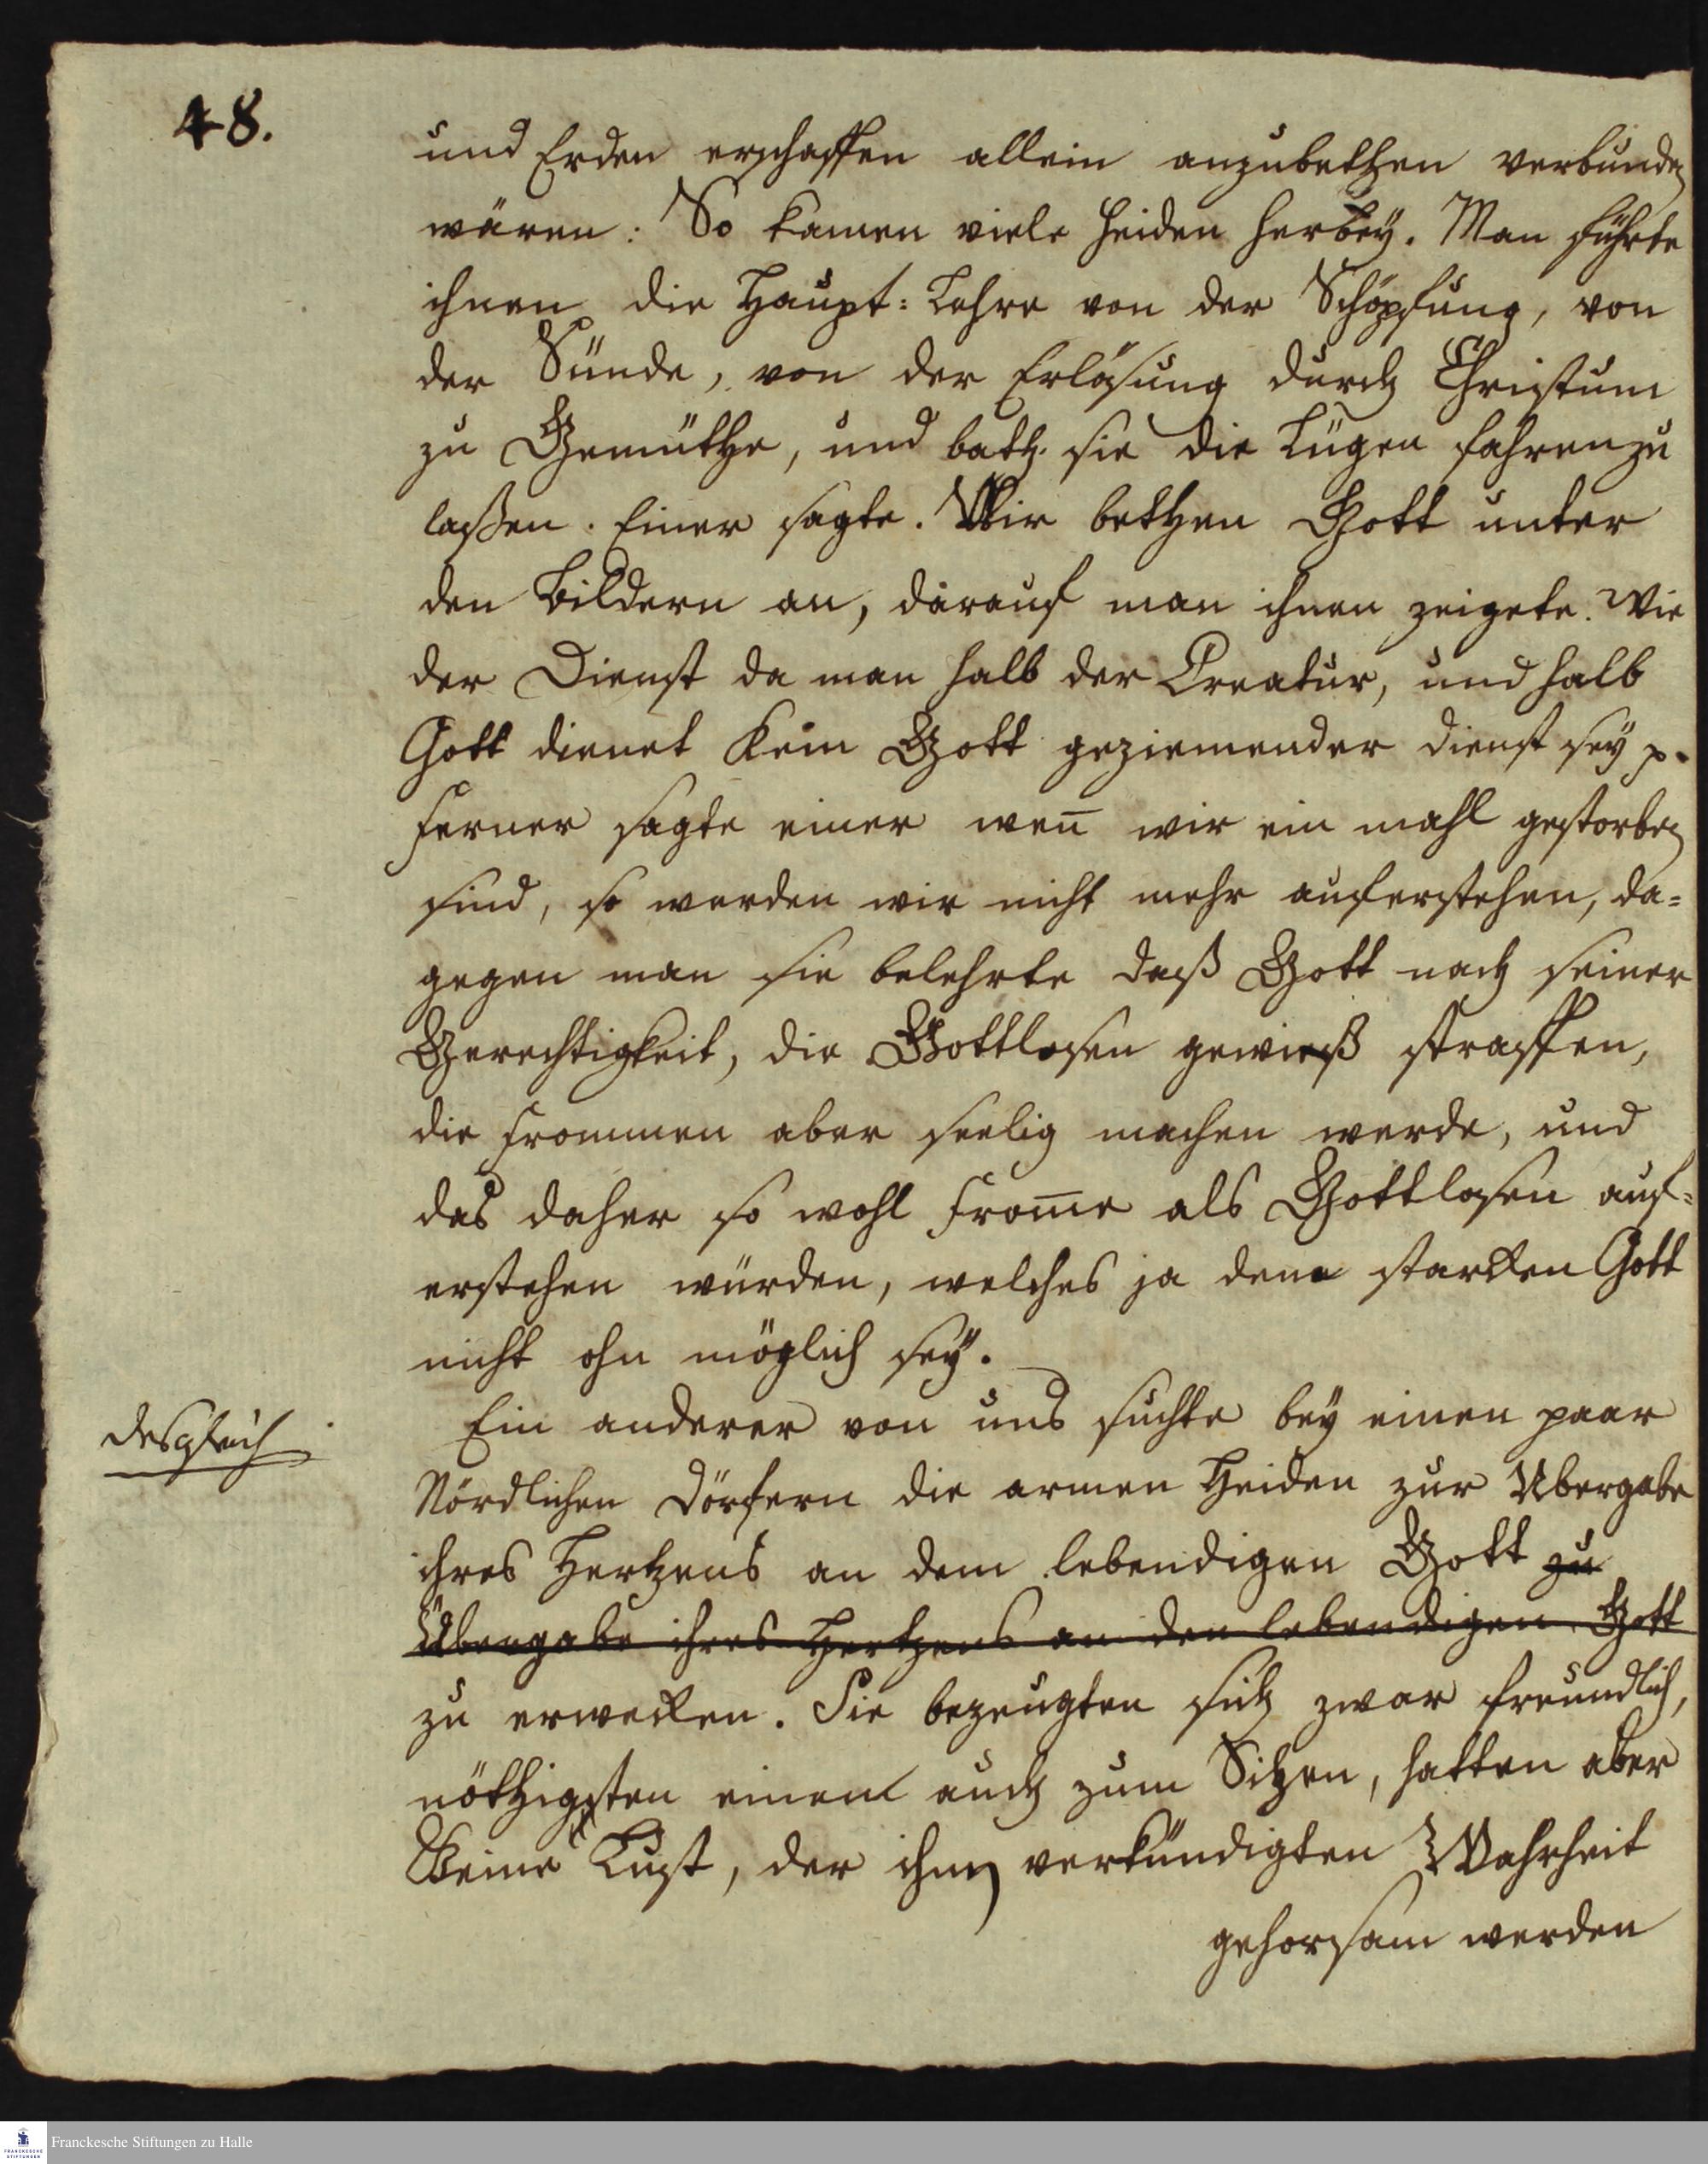 48.
und Erden erschaffen allein anzubethen verbunden
wären: So kamen viele Heiden herbey. Man führte
ihnen die Haupt: Lehre von der Schöpfung, von
der Sünde, von der Erlösung durch Christum
zu Gemüthe, und bath sie die Lügen fahren zu
laßen. Einer sagte. Wir bethen Gott unter
den Bildern an, darauf man ihnen zeigete. Wie
der Dienst da man halb der Creatur, und halb
Gott dienet kein Gott geziemender dienst sey p.
ferner sagte einer weñ wir ein mahl gestorben
sind, so werden wir nicht mehr auferstehen, da=
gegen man sie belehrte daß Gott nach seiner
Gerechtigkeit, die Gottlosen gewiß straffen,
die frommen aber seelig machen werde, und
das daher so wohl from̅e als Gottlosen auf=
erstehen würden, welches ja dem starcken Gott
nicht ohn möglich sey.
desgleich
Ein anderer von uns suchte bey einen paar
Nördlichen Dörfern die armen Heiden zur Ubergabe
ihres Hertzens an dem lebendigen Gott zu
Übergabe ihres Hertzens an den lebendigen Gott
zu erwecken. Sie bezeugten sich zwar freundlich,
nöthigten einen auch zum Sitzen, hatten aber
Keine Lust, der ihnen verkündigten Wahrheit
gehorsam werden
FRANCKESCHE
STIFTUNGEN
Franckesche Stiftungen zu Halle